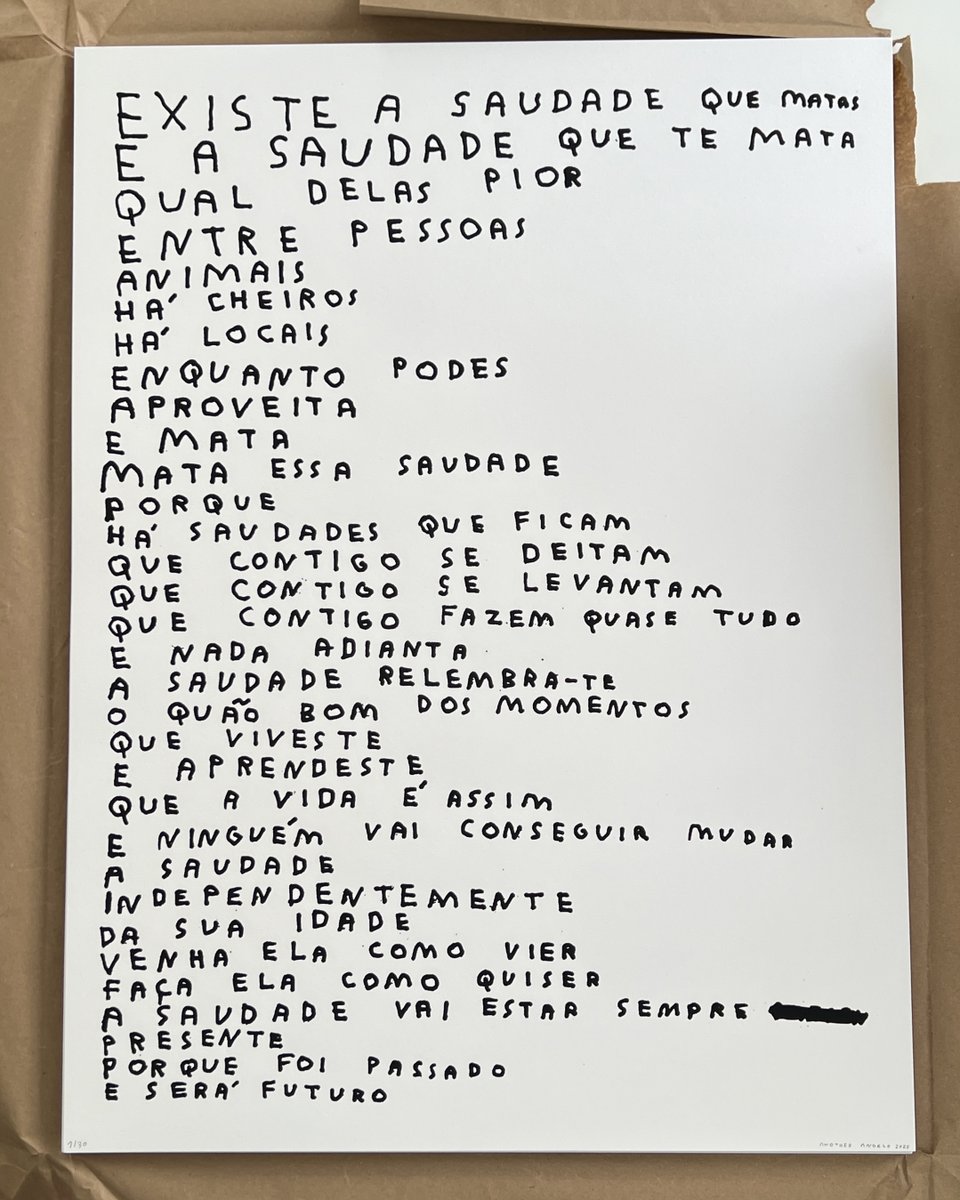 EXISTE A SAUDADE QUE MATAS
E A SAUDADE QUE TE MATA
QUAL DELAS PIOR
ENTRE PESSOAS
ANIMAIS
HÁ CHEIROS
HÁ LOCAIS
ENQUANTO PODES
APROVEITA
E MATA
MATA ESSA SAUDADE
PORQUE
HÁ SAUDADES QUE FICAM
QUE CONTIGO SE DEITAM
QUE CONTIGO SE LEVANTAM
QUE CONTIGO FAZEM QUASE TUDO
E NADA ADIANTA
A SAUDADE RELEMBRA-TE
O QUÃO BOM DOS MOMENTOS
QUE VIVESTE
E APRENDESTE
QUE A VIDA É ASSIM
E NINGUÉM VAI CONSEGUIR MUDAR
A SAUDADE
INDEPENDENTEMENTE
DA SUA IDADE
VENHA ELA COMO VIER
FAÇA ELA COMO QUISER
A SAUDADE VAI ESTAR SEMPRE
PRESENTE
PORQUE FOI PASSADO
E SERÁ FUTURO
ANOTHER ANGELO